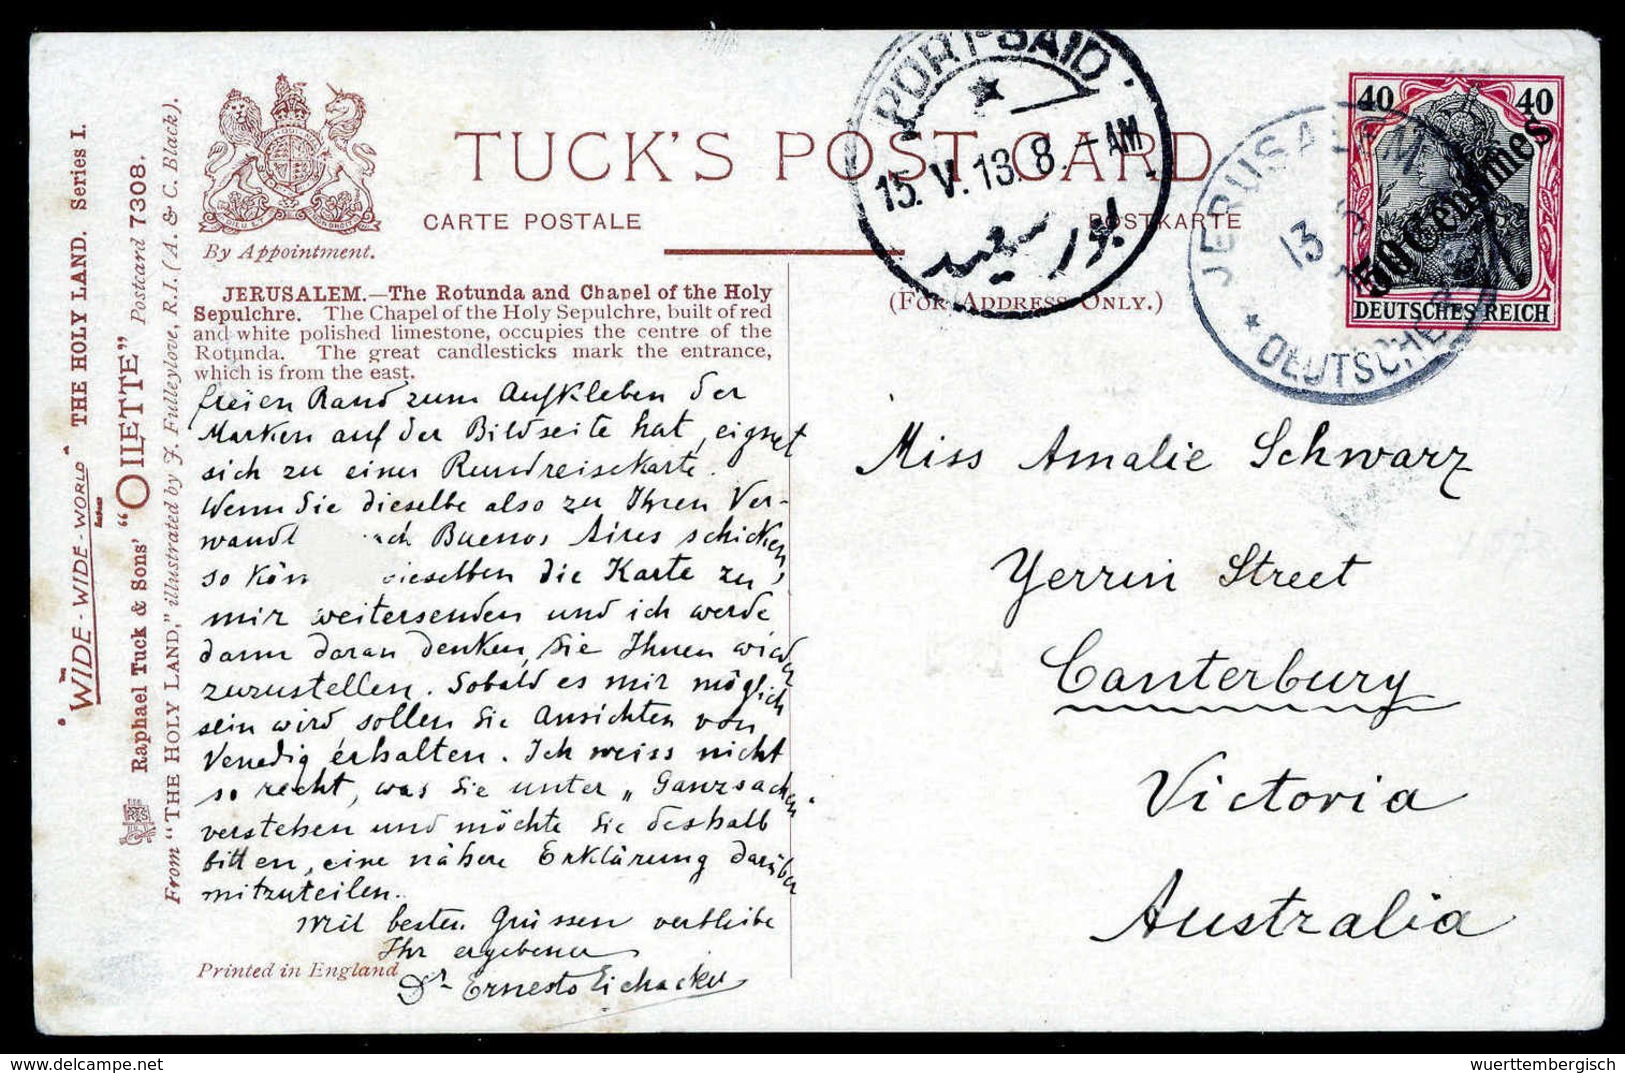 TUCK'S POST CARD
CARTE POSTALE
POSTKARTE
By Appointment.
(FOR ADDRESS ONLY.)
JERUSALEM.—The Rotunda and Chapel of the Holy
Sepulchre. The Chapel of the Holy Sepulchre, built of red
and white polished limestone, occupies the centre of the
Rotunda. The great candlesticks mark the entrance,
which is from the east.
freien Rand zum Aufkleben der
Marken auf der Bildseite hat, eignet
sich zu einer Rundreisekarte.
Wenn Sie dieselbe also zu Ihren Ver-
wandt ach Buenos Aires schicken,
so könn dieselben die Karte zu
mir weitersenden und ich werde
dann daran denken, sie Ihnen wieder
zuzustellen. Sobald es mir möglich
sein wird, sollen Sie Ansichten von
Venedig erhalten. Ich weiss nicht
so recht, was Sie unter „Ganzsachen“
verstehen und möchte Sie deshalb
bitten, eine nähere Erklärung darüber
mitzuteilen.
Mit besten Grüssen verbleibe
Ihr ergebener
Dr Ernesto Eichacker
Printed in England
"WIDE-WIDE-WORLD" THE HOLY LAND. Series I.
Raphael Tuck & Sons' "OILETTE" Postcard 7308.
From "THE HOLY LAND," illustrated by J. Fulleylove, R.I. (A. & C. Black).
PORT-SAID
15. V. 13. 8 - AM
بور سعيد
JERUSALEM
13
DEUTSCHE
40 40
50 Centimes
DEUTSCHES REICH
Miss Amalie Schwarz
Yerrin Street
Canterbury
Victoria
Australia
wuerttembergisch